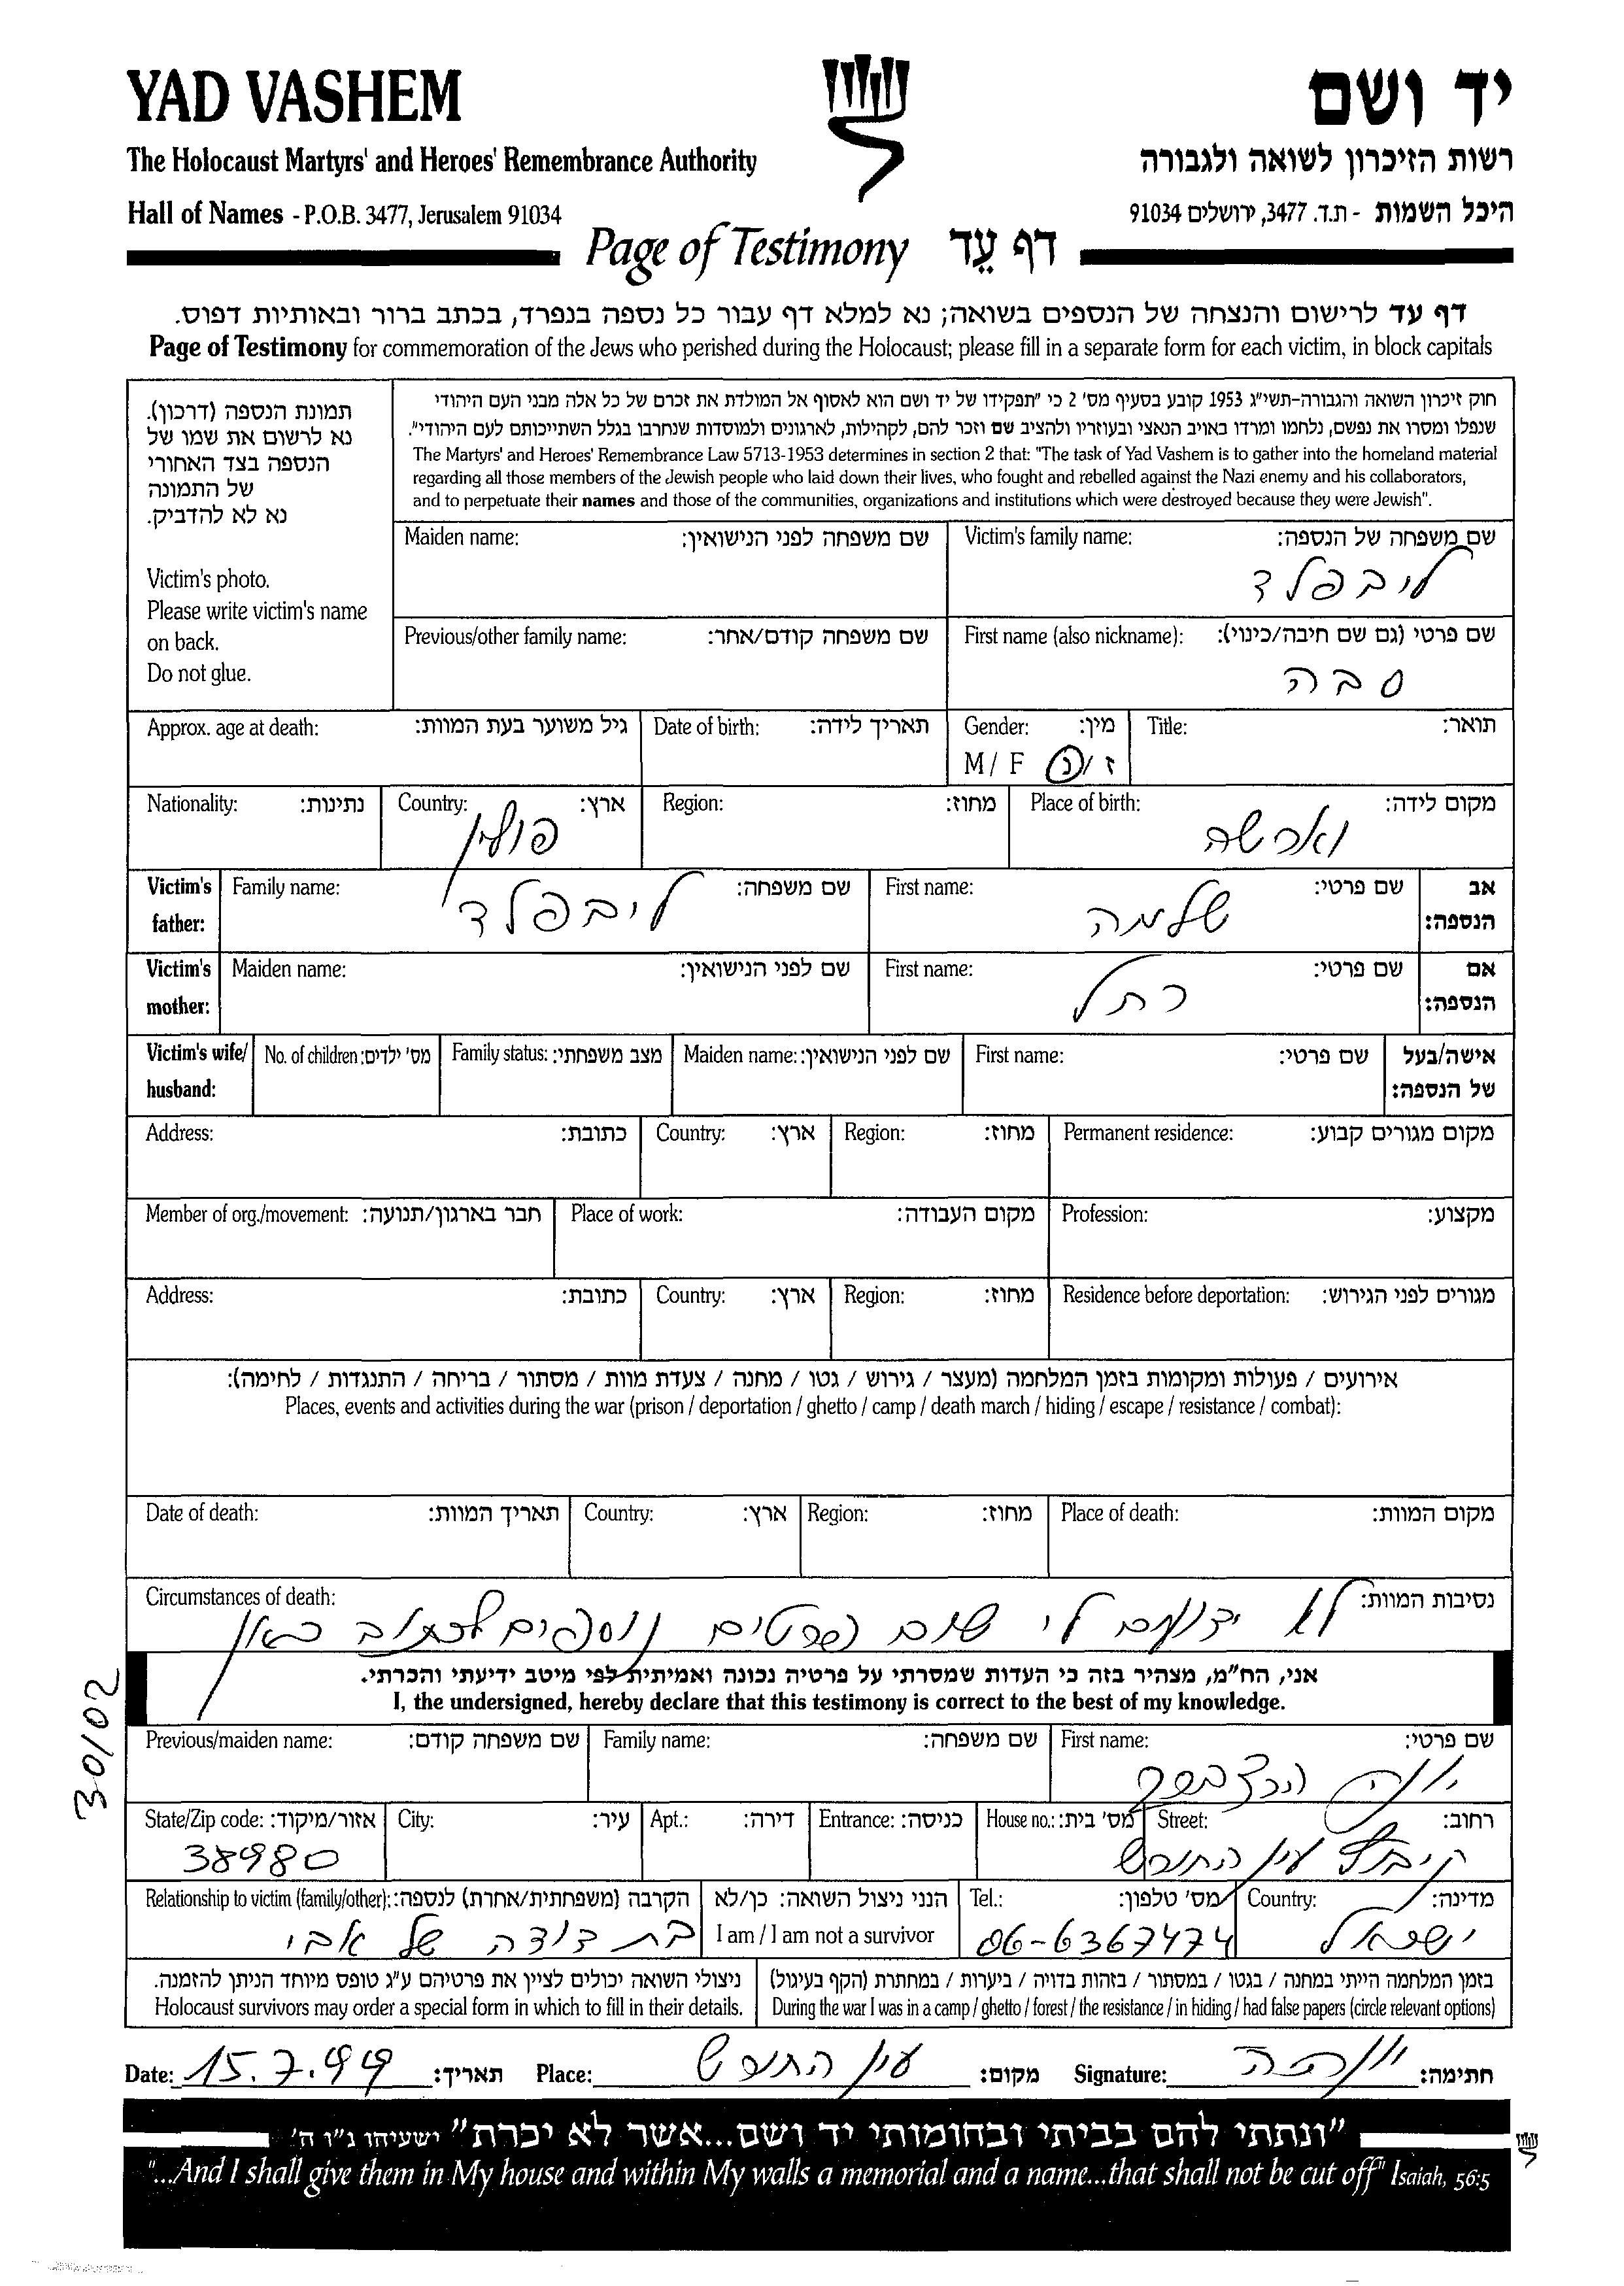 YAD VASHEM
יד ושם
The Holocaust Martyrs' and Heroes' Remembrance Authority
רשות הזיכרון לשואה ולגבורה
Hall of Names - P.O.B. 3477, Jerusalem 91034
היכל השמות - ת.ד. 3477, ירושלים 91034
Page of Testimony דף עֵד
דף עד לרישום והנצחה של הנספים בשואה; נא למלא דף עבור כל נספה בנפרד, בכתב ברור ובאותיות דפוס.
Page of Testimony for commemoration of the Jews who perished during the Holocaust; please fill in a separate form for each victim, in block capitals
תמונת הנספה (דרכון).
נא לרשום את שמו של
הנספה בצד האחורי
של התמונה
נא לא להדביק.
Victim's photo.
Please write victim's name
on back.
Do not glue.
חוק זיכרון השואה והגבורה-תשי״ג 1953 קובע בסעיף מס' 2 כי "תפקידו של יד ושם הוא לאסוף אל המולדת את זכרם של כל אלה מבני העם היהודי
שנפלו ומסרו את נפשם, נלחמו ומרדו באויב הנאצי ובעוזריו ולהציב שם וזכר להם, לקהילות, לארגונים ולמוסדות שנחרבו בגלל השתייכותם לעם היהודי".
The Martyrs' and Heroes' Remembrance Law 5713-1953 determines in section 2 that: "The task of Yad Vashem is to gather into the homeland material
regarding all those members of the Jewish people who laid down their lives, who fought and rebelled against the Nazi enemy and his collaborators,
and to perpetuate their names and those of the communities, organizations and institutions which were destroyed because they were Jewish".
Victim's family name: שם משפחה של הנספה:
ליבפלד
Maiden name: שם משפחה לפני הנישואין:
First name (also nickname): שם פרטי (גם שם חיבה/כינוי):
סבה
Previous/other family name: שם משפחה קודם/אחר:
Title: תואר:
Gender: מין:
M / F ז / נ
Date of birth: תאריך לידה:
Approx. age at death: גיל משוער בעת המוות:
Place of birth: מקום לידה:
וארשה
Region: מחוז:
Country: ארץ:
פולין
Nationality: נתינות:
Victim's father: אב הנספה:
First name: שם פרטי:
שלמה
Family name: שם משפחה:
ליבפלד
Victim's mother: אם הנספה:
First name: שם פרטי:
רחל
Maiden name: שם לפני הנישואין:
Victim's wife/ husband: אישה/בעל של הנספה:
First name: שם פרטי:
Maiden name: שם לפני הנישואין:
Family status: מצב משפחתי:
No. of children: מס' ילדים:
Permanent residence: מקום מגורים קבוע:
Region: מחוז:
Country: ארץ:
Address: כתובת:
Profession: מקצוע:
Place of work: מקום העבודה:
Member of org./movement: חבר בארגון/תנועה:
Residence before deportation: מגורים לפני הגירוש:
Region: מחוז:
Country: ארץ:
Address: כתובת:
אירועים / פעולות ומקומות בזמן המלחמה (מעצר / גירוש / גטו / מחנה / צעדת מוות / מסתור / בריחה / התנגדות / לחימה):
Places, events and activities during the war (prison / deportation / ghetto / camp / death march / hiding / escape / resistance / combat):
Place of death: מקום המוות:
Region: מחוז:
Country: ארץ:
Date of death: תאריך המוות:
Circumstances of death: נסיבות המוות:
לא ידועים לי שום פרטים נוספים לכתוב כאן
אני, הח״מ, מצהיר בזה כי העדות שמסרתי על פרטיה נכונה ואמיתית לפי מיטב ידיעתי והכרתי.
I, the undersigned, hereby declare that this testimony is correct to the best of my knowledge.
30/02
First name: שם פרטי:
יונה
Family name: שם משפחה:
Previous/maiden name: שם משפחה קודם:
Street: רחוב:
קיבוץ עין החורש
House no.: מס' בית:
Entrance: כניסה:
Apt.: דירה:
City: עיר:
State/Zip code: אזור/מיקוד:
38980
Country: מדינה:
ישראל
Tel.: מס' טלפון:
06-6367474
הנני ניצול השואה: כן/לא
I am / I am not a survivor
Relationship to victim (family/other): הקרבה (משפחתית/אחרת) לנספה:
בת דודה של אבי
בזמן המלחמה הייתי במחנה / בגטו / במסתור / בזהות בדויה / ביערות / במחתרת (הקף בעיגול)
During the war I was in a camp / ghetto / forest / the resistance / in hiding / had false papers (circle relevant options)
ניצולי השואה יכולים לציין את פרטיהם ע״ג טופס מיוחד הניתן להזמנה.
Holocaust survivors may order a special form in which to fill in their details.
Date: 15.7.99 תאריך: Place: עין החורש מקום: Signature: יונה חתימה:
"ונתתי להם בביתי ובחומותי יד ושם...אשר לא יכרת" ישעיהו נ״ו ה'
"...And I shall give them in My house and within My walls a memorial and a name...that shall not be cut off" Isaiah, 56:5